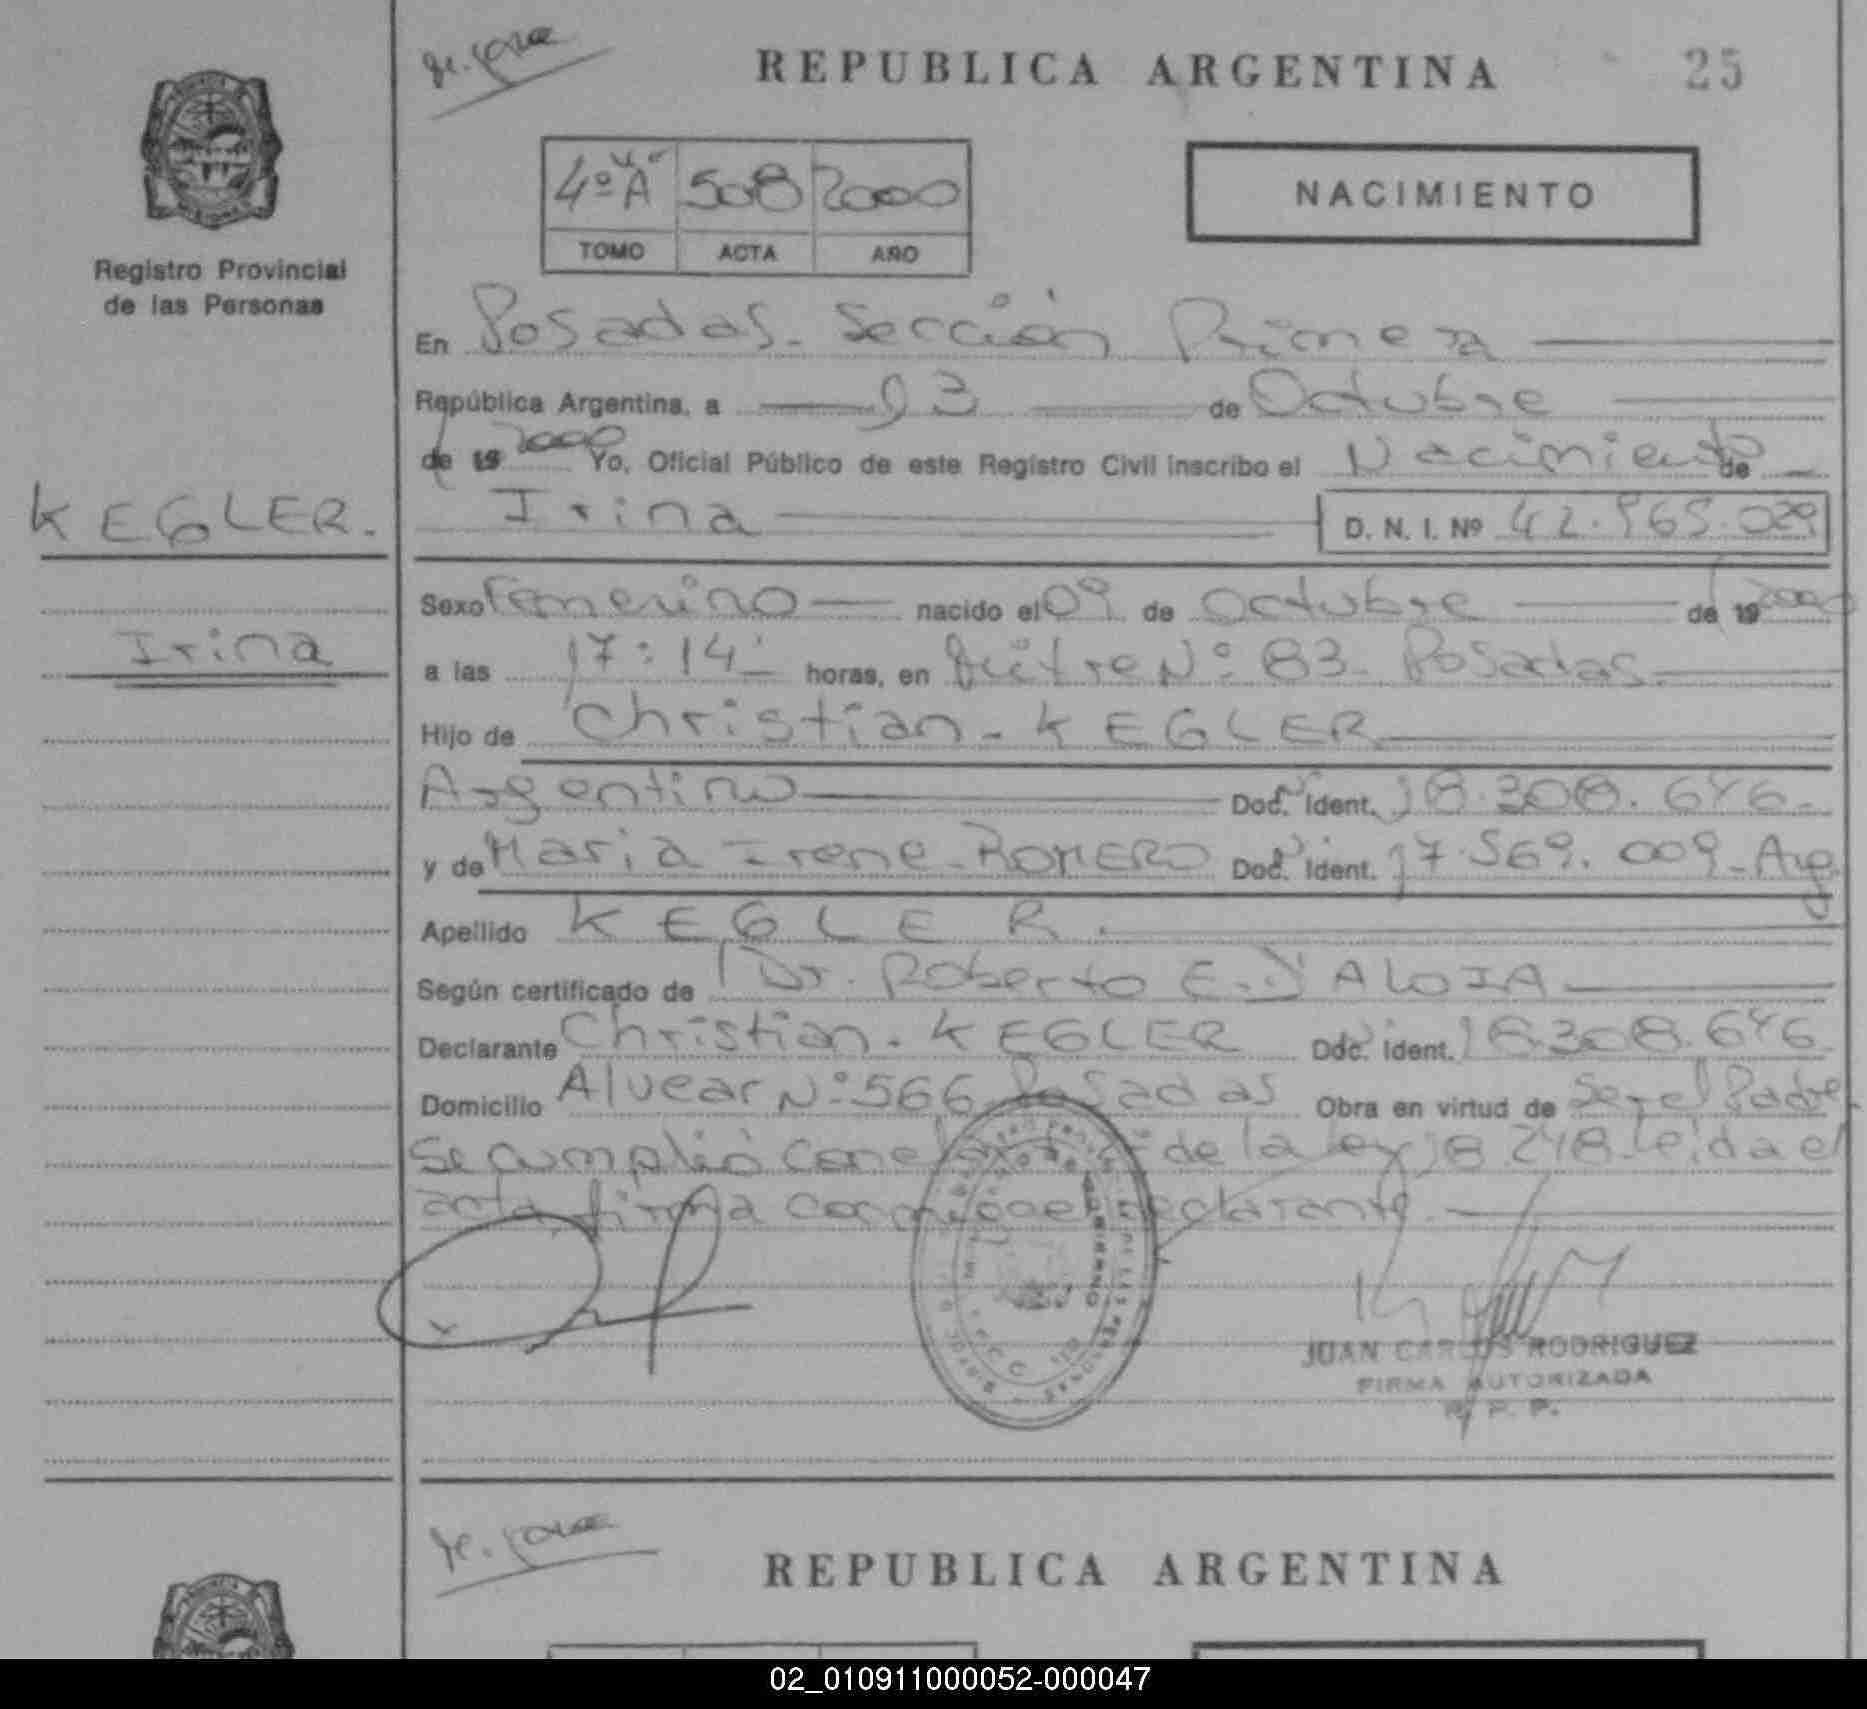 REPUBLICA ARGENTINA
25
4º A 508 2000
TOMO ACTA AÑO
NACIMIENTO
Registro Provincial
de las Personas
En Posadas - Sección Primera
República Argentina, a 13 de Octubre
de 19 2000 Yo, Oficial Público de este Registro Civil inscribo el Nacimiento de
KEGLER.
Irina D. N. I. Nº 42.965.029
Sexo Femenino nacido el 09 de Octubre de 19 2000
Irina
a las 17:14 horas, en Nº 83 - Posadas.
Hijo de Christian - KEGLER
Argentino Doc. Ident. 18.308.646.
y de Maria Irene - ROMERO Doc. Ident. 17.569.009 - Arg.
Apellido KEGLER.
Según certificado de Dr. Roberto E. D'ALOIA
Declarante Christian - KEGLER Doc. Ident. 18.308.646
Domicilio Alvear Nº 566 Posadas Obra en virtud de ser el Padre
Se cumplió con el de la ley 18.248. leida el
acta, firma conmigo el declarante.
GOBIERNO
JUAN CARLOS RODRIGUEZ
FIRMA AUTORIZADA
R. P. P.
REPUBLICA ARGENTINA
02_010911000052-000047